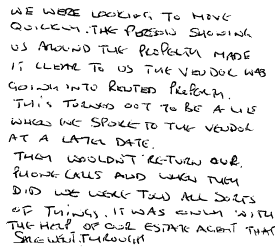 WE WERE LOOKING TO MOVE
QUICKLY. THE PERSON SHOWING
US AROUND THE PROPERTY MADE
IT CLEAR TO US THE VENDOR WAS
GOING INTO RENTED PROPERTY.
THIS TURNED OUT TO BE A LIE
WHEN WE SPOKE TO THE VENDOR
AT A LATER DATE.
THEY WOULDN'T RETURN OUR
PHONE CALLS AND WHEN THEY
DID WE WERE TOLD ALL SORTS
OF THINGS. IT WAS ONLY WITH
THE HELP OF OUR ESTATE AGENT THAT
SALE WENT THROUGH